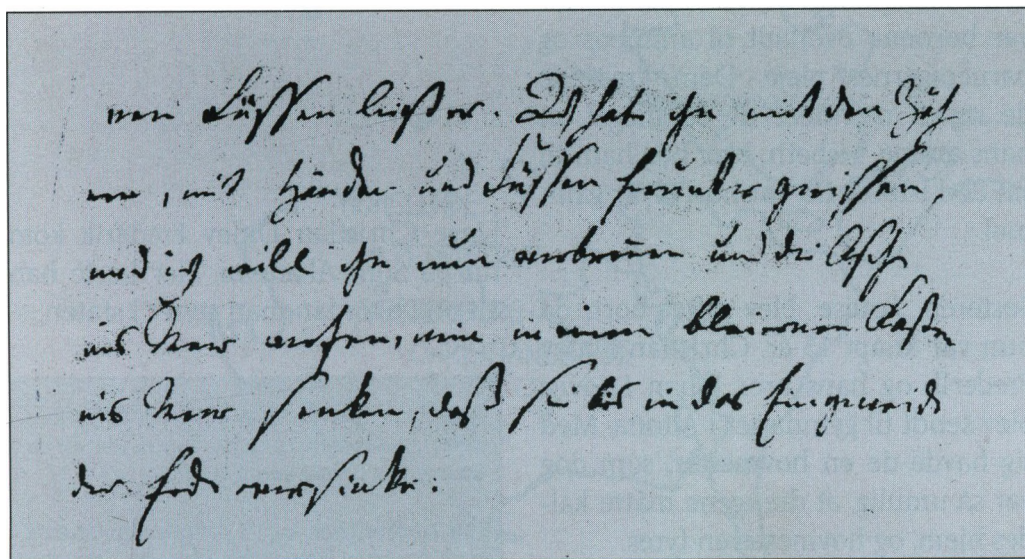 Füssen Ich habe ihn mit den Zäh
nen, mit Händen und Füssen herunter gerissen,
und ich will ihn nun verbrennen und die Asche
ins Meer werfen, nein in einem bleiernen Kasten
ins Meer senken, daß sie bis in das Eingeweide
der Erde versinke.